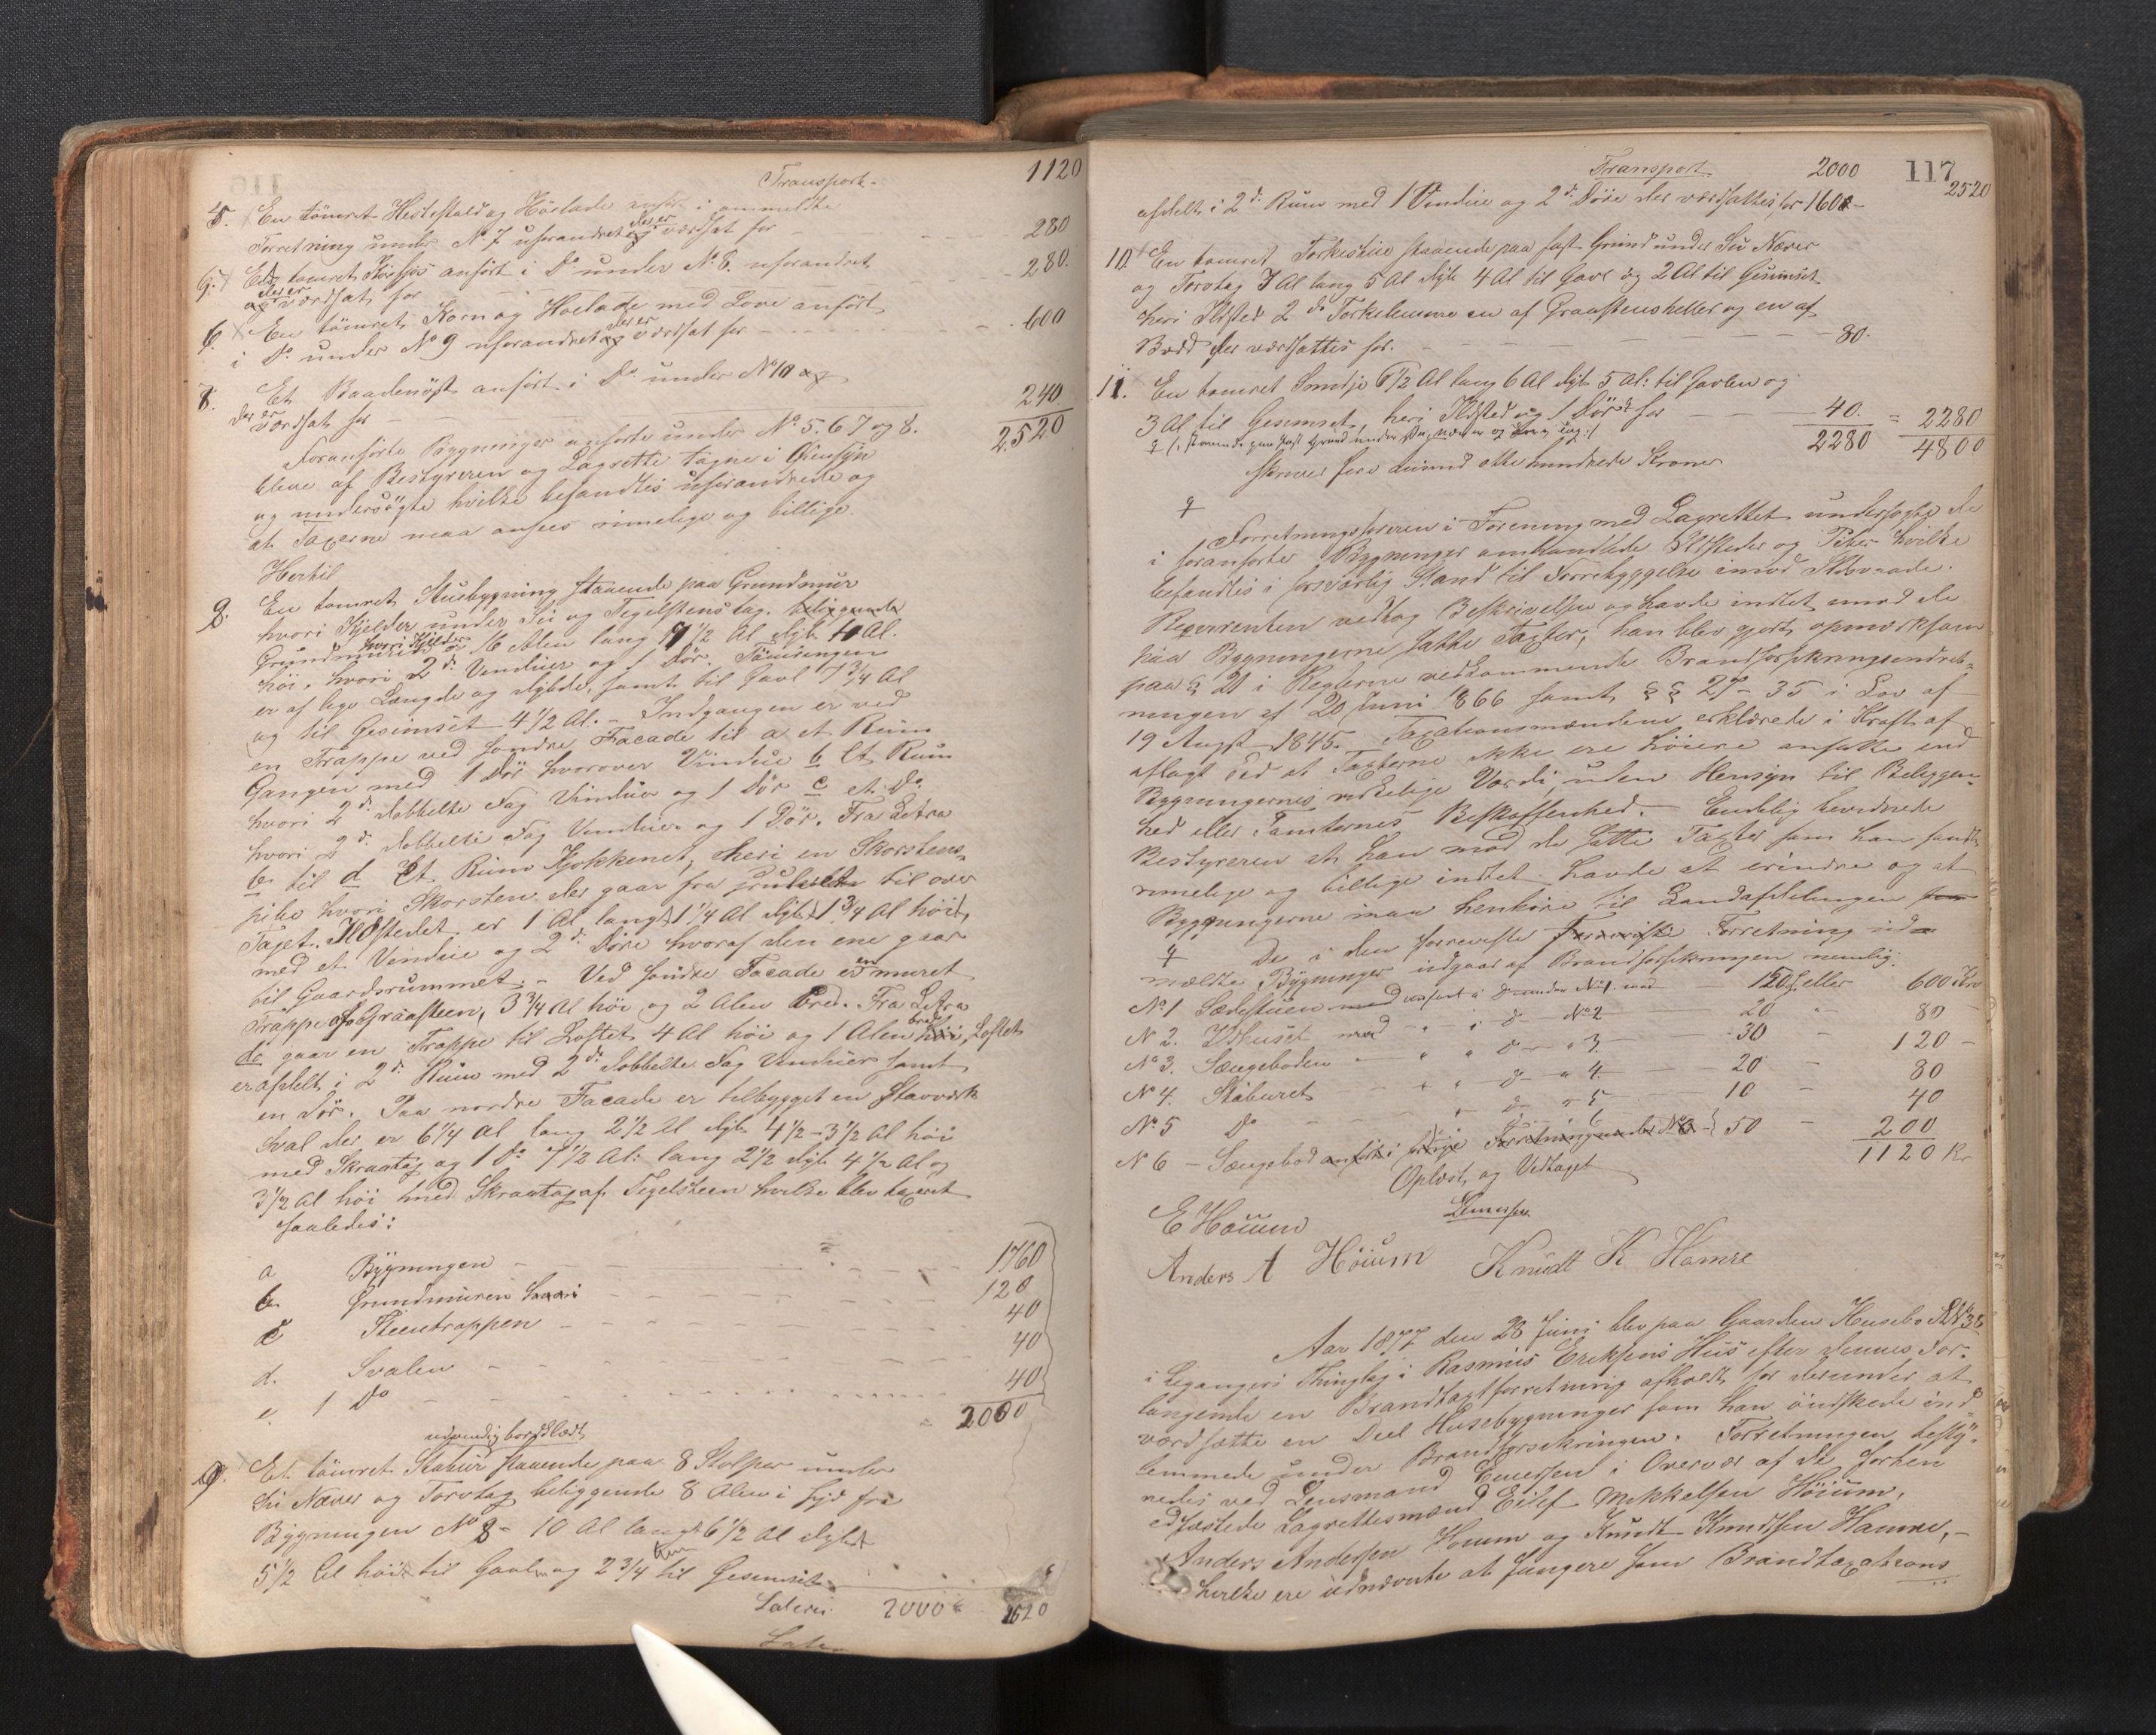 Transport. 1120
5. En tömret Hestestald og Höelade anfört i ommeldte
Forretning under No. 7 uforandret og der er værdsat for 280
6. En tomret Floefjös anfört i Do under No 8. uforandret
og der er værdsat for 280.
6. En tömret Korn og Hoelade med Love anfört
i Do under No 9 uforandret og der er værdsat for 600
8. Et Baadenöst anfört i Do under No 10 og
der er værdsat for 240
2520
Foranförte Bygninger anförte under No 5. 6 7 og 8.
bleve af Bestyreren og Lagrette tagne i Öiensyn
og undersögte hvilke befandtes uforandrede og
at Taxerne maa ansees rimelige og billige.
Hertil
9. En tomret Stuebygning staaende paa Grundmur
hvori Kjelder under Su og Tegelstens tag. beliggende
Grundmuren hvori Kjelder er 16 Alen lang 7 1/2 Al dyb 4 Al.
höi, hvori 2de Vinduer og 1 Dör. Tömringen
er af lige Længde og dybde, samt til Gavl 7 3/4 Al
og til Gesimset 4 1/2 Al. - Indgangen er ved
en Trappe ved søndre Facade til a et Rum
Gangen med 1 Dör hvorover Vindue b Et Rum
hvori 2de dobbelte Fag Vinduer og 1 Dör c et Do
hvori 2de dobbelte Fag Vinduer og 1 Dör. Fra Litra
b til d Et Rum Kjøkkenet, heri en Skorstens-
pibe hvori Skorsten der gaar fra Grunden til over
Taget. Ildstedet er 1 Al langt 1 1/4 Al dybt 1 3/4 Al höit,
med et Vindue og 2de Döre hvoraf den ene gaar
til Gaardsrummet. - Ved søndre Facade er en muret
Trappe af Graasteen, 3 3/4 Al höi og 2 Alen bred. Fra Litra
de gaar en Trappe til Loftet 4 Al höi og 1 Alen bred, Loftet
er afdelt i 2de Rum med 2de dobbelte Fag Vinduer samt
en Dör. Paa nordre Facade er tilbygget en Stavværk
Sval der er 6 1/4 Al lang 2 1/2 Al dyb 4 1/2 - 3 1/2 Al höi
med Skraatag og 1 Do 7 1/2 Al: lang 2 1/2 dyb 4 1/2 Al og
3 1/2 Al höi med Skraatag af Tegelsteen hvilke blev taxeret
saaledes:
a Bygningen 1760
b Grundmuren 120
c Steentrappen 40
d. Svalen 40
e. 1 Do 40
2000
udvendig bordklædt
9. Et tömret Stabur staaende paa 8 Stolper under
Su Næver og Torvtag beliggende 8 Alen i syd fra
Bygningen No 8 - 10 Al langt 6 1/2 Al dybt
5 1/2 Al höit til Gavlen og 2 3/4 til Gesimset
Lateris 2000 2520
Transport 2000 117
2520
afdelt i 2de Rum med 1 Vindue og 2de Döre der værdsattes for 160
10. En tomret Torkestue staaende paa fast Grund under Su Næver
og Torvtag 7 Al lang 5 Al dyb 4 Al til Gavl og 2 Al til Gesimset
heri Ildsted 2de Torkelemme en af Graastensheller og en af
Bord der værdsattes for. 80.
11. En tomret Smidje 6 1/2 Al lang 6 Al dyb 5 Al: til Gavlen og
3 Al til Gesimset, heri Ildsted og 1 Dör for 40. = 2280
(: staaende paa fast Grund under Su, næver og Torv tag :) 2280 4800
skriver fire tusind otte hundrede Kroner
Forretningsföreren i Forening med Lagrettet undersøgte de
i foranførte Bygninger omhandlede Ildsteder og Piber hvilke
befandtes i forsvarlig Stand til Forrebyggelse imod Ildsvaade.
Reqvirenten vedtog Beskrivelsen og havde intet imod de
paa Bygningerne satte Taxter, han blev gjort opmærksom
paa § 21 i Reglerne vedkommende Brandforsikringsindret-
ningen af 20 Juni 1866 samt §§ 27 - 35 i Lov af
19 Augst 1845. Taxationsmændene erklærede i Kraft af
aflagt Eed at Taxterne ikke ere höiere ansatte end
Bygningernes virkelige Værdi, uden Hensyn til Beliggen-
hed eller Tomternes Beskaffenhed. - Endelig bevidnede
Bestyreren at han mod de satte Taxter som han fandt
rimelige og billige intet havde at erindre og at
Bygningerne maa henhöre til Landafdelingen
De i den forreviste Forretning ind-
mældte Bygninger udgaar af Brandforsikringen nemlig:
No 1 Sædestuen 150 eller 600 Kro
No 2. Ildhuset - " i do No 2 20 - 80 -
No 3. Sængeboden - " " do " 3 30 - 120 -
No 4. Stáburet - " " do " 4 20 - 80
No 5 Do - " do " 5 10 - 40
No 6 - Sængebod anfört i forrige Forretning under No 6 50 - 200
1120 Kr
Oplæst og Vedtaget
Enersen
E Höium
Anders A Höium Knudt K Hamre
Aar 1877 den 28 Juni blev paa Gaarden Husebø
i Leganger Thinglag i Rasmus Eriksens Hus efter dennes For-
langende en Brandtaxtforretning afholdt for derunder at
værdsætte en Deel Husebygninger som han önskede ind-
lemmede under Brandforsikringen. Forretningen besty-
redes ved Lensmand Enersen i Overvær af de forhen
edfæstede Lagrettesmænd Eilef Mikkelsen Höium,
Anders Andersen Höium og Knudt Knudsen Hamre, -
hvilke ere udnævnte at fungere som Brandtaxations